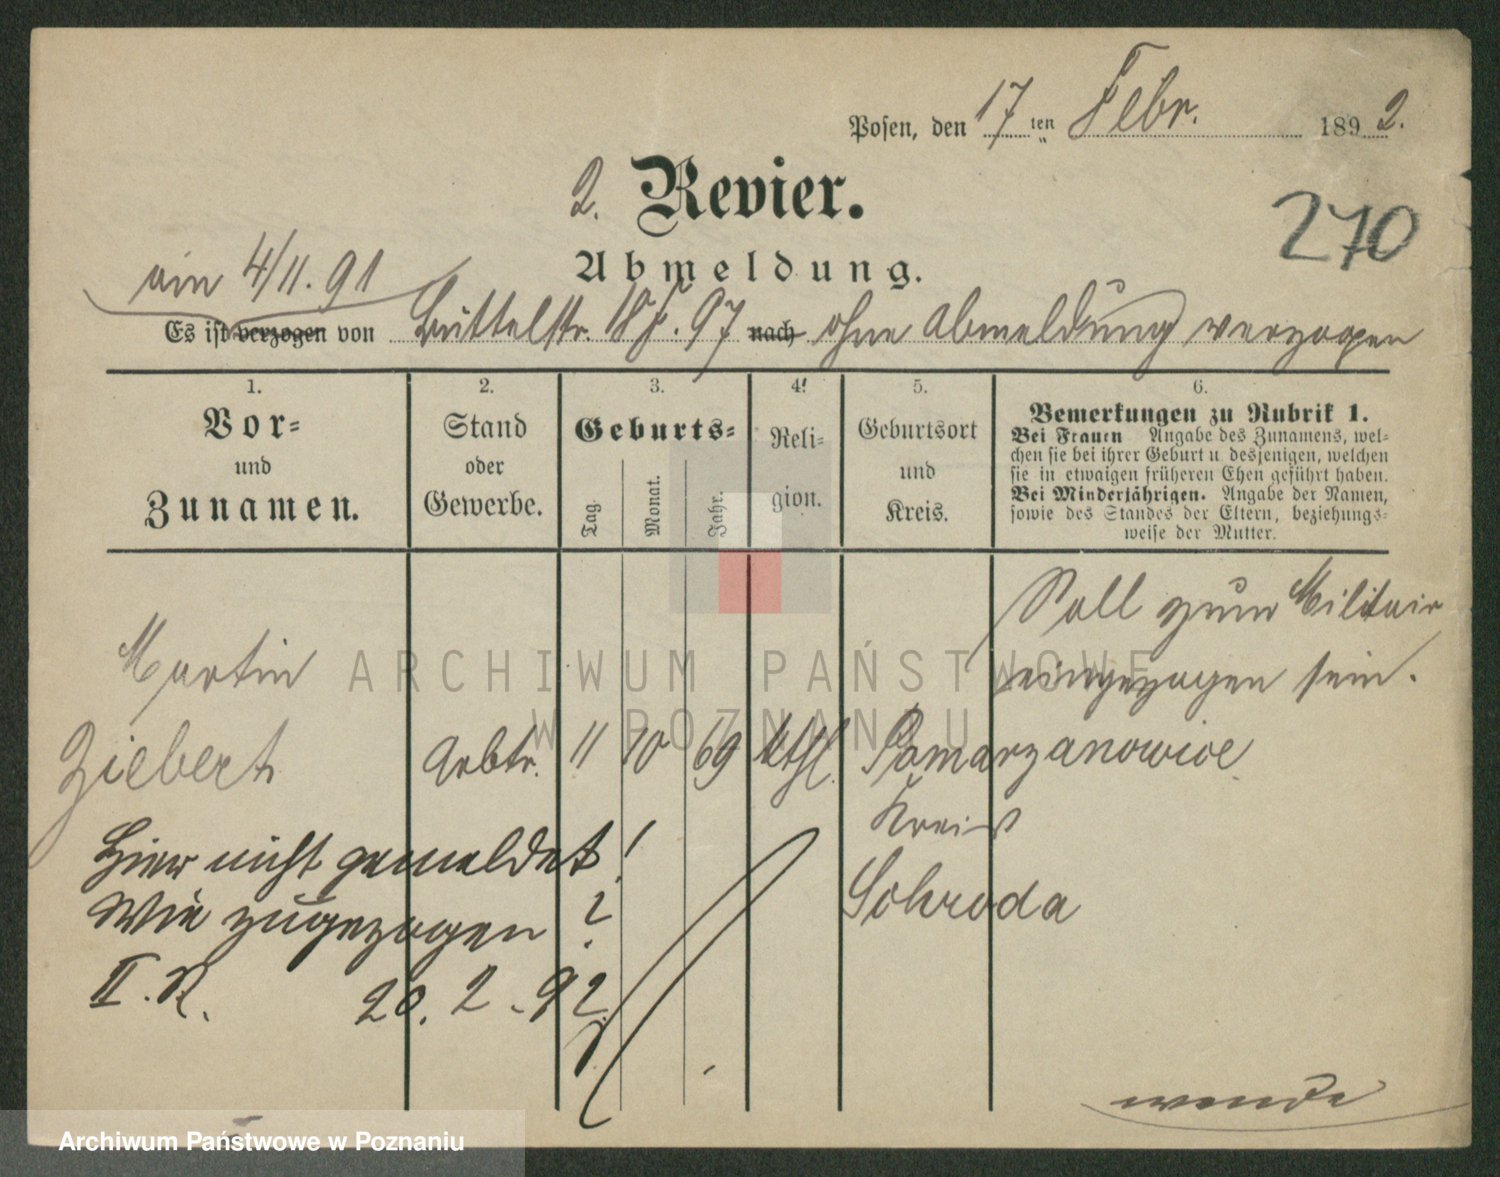 Posen, den 17 ten Febr. 1892.
2. Revier.
270
Abmeldung.
am 4/11. 91
Es ist verzogen von Büttelstr. 18 97 nach ohne Abmeldung verzogen
1. 2. 3. 4. 5. 6.
Vor- und Zunamen.
Stand oder Gewerbe.
Geburts-
Tag. Monat. Jahr.
Religion.
Geburtsort und Kreis.
Bemerkungen zu Rubrik 1.
Bei Frauen Angabe des Zunamens, wel-
chen sie bei ihrer Geburt u. desjenigen, welchen
sie in etwaigen früheren Ehen geführt haben.
Bei Minderjährigen. Angabe der Namen,
sowie des Standes der Eltern, beziehungs-
weise der Mutter.
Soll zum Militair
eingezogen sein.
Martin
Ziebert Arbtr. 11 10 69 kthl. Pomarzanowice
Kreis
Schroda
Hier nicht gemeldet!
Wie zugezogen?
II. R. 20. 2. 92.
wende
ARCHIWUM PAŃSTWOWE
W POZNANIU
Archiwum Państwowe w Poznaniu